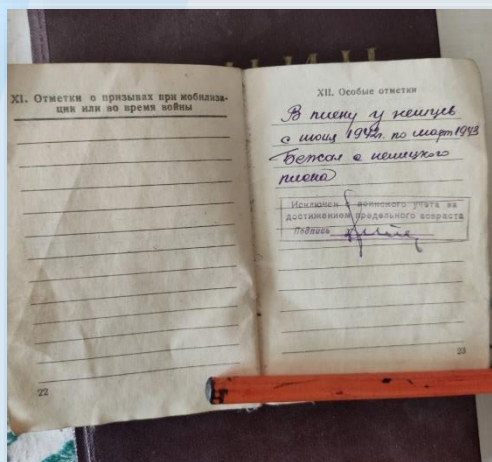 XI. Отметки о призывах при мобилиза-
ции или во время войны
22
XII. Особые отметки
В плену у немцев
с июня 1942г. по март 1943
Бежал с немецкого
плена
Исключен с воинского учета за
достижением предельного возраста
Подпись
33